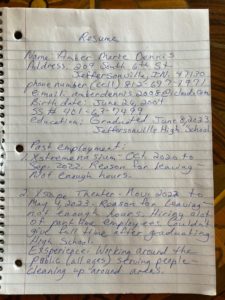 Resume
Name: Amber Marie Dennis
Address: South 6th St
Jeffersonville, IN, 47130
phone number (cell)
Email:
Birthdate: June 2004
SS#
education: Graduated June 2023
Jeffersonville High School
Past employment:
1. Xstreme Oct. 2020 to
Sep. 2022. Reason for leaving-
Not enough hours.
2. Theater- Nov. 2022 to
May 4, 2023. Reason for Leaving-
not enough hours. Hiring alot
of part time employees. Couldn't
give full time after graduating
High School.
Experience: Working around the
Public (all ages) serving people-
cleaning up around areas.